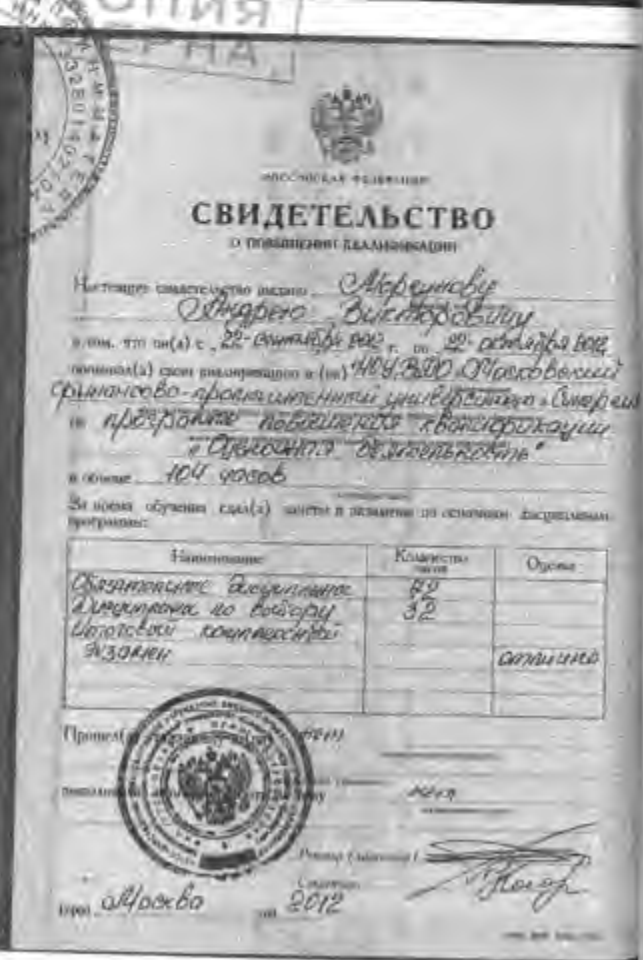 КОПИЯ
ВЕРНА
РОССИЙСКАЯ ФЕДЕРАЦИЯ
СВИДЕТЕЛЬСТВО
О ПОВЫШЕНИИ КВАЛИФИКАЦИИ
Настоящее свидетельство выдано
Андрею Викторовичу
в том, что он(а) с 22 сентября г. по 22 октября 2012
повышал(а) свою квалификацию в (на) НОУ ВПО "Московский
финансово-промышленный университет "Синергия
по программе повышения квалификации
"Оценочная деятельность"
в объеме 104 часов
За время обучения сдал(а) зачеты и экзамены по основным дисциплинам
программы:
Наименование Количество часов Оценка
Обязательные дисциплины 72
Дисциплины по выбору 32
Итоговый комплексный
экзамен отлично
Прошел(
нет
Ректор (директор)
Секретарь
Город Москва год 2012